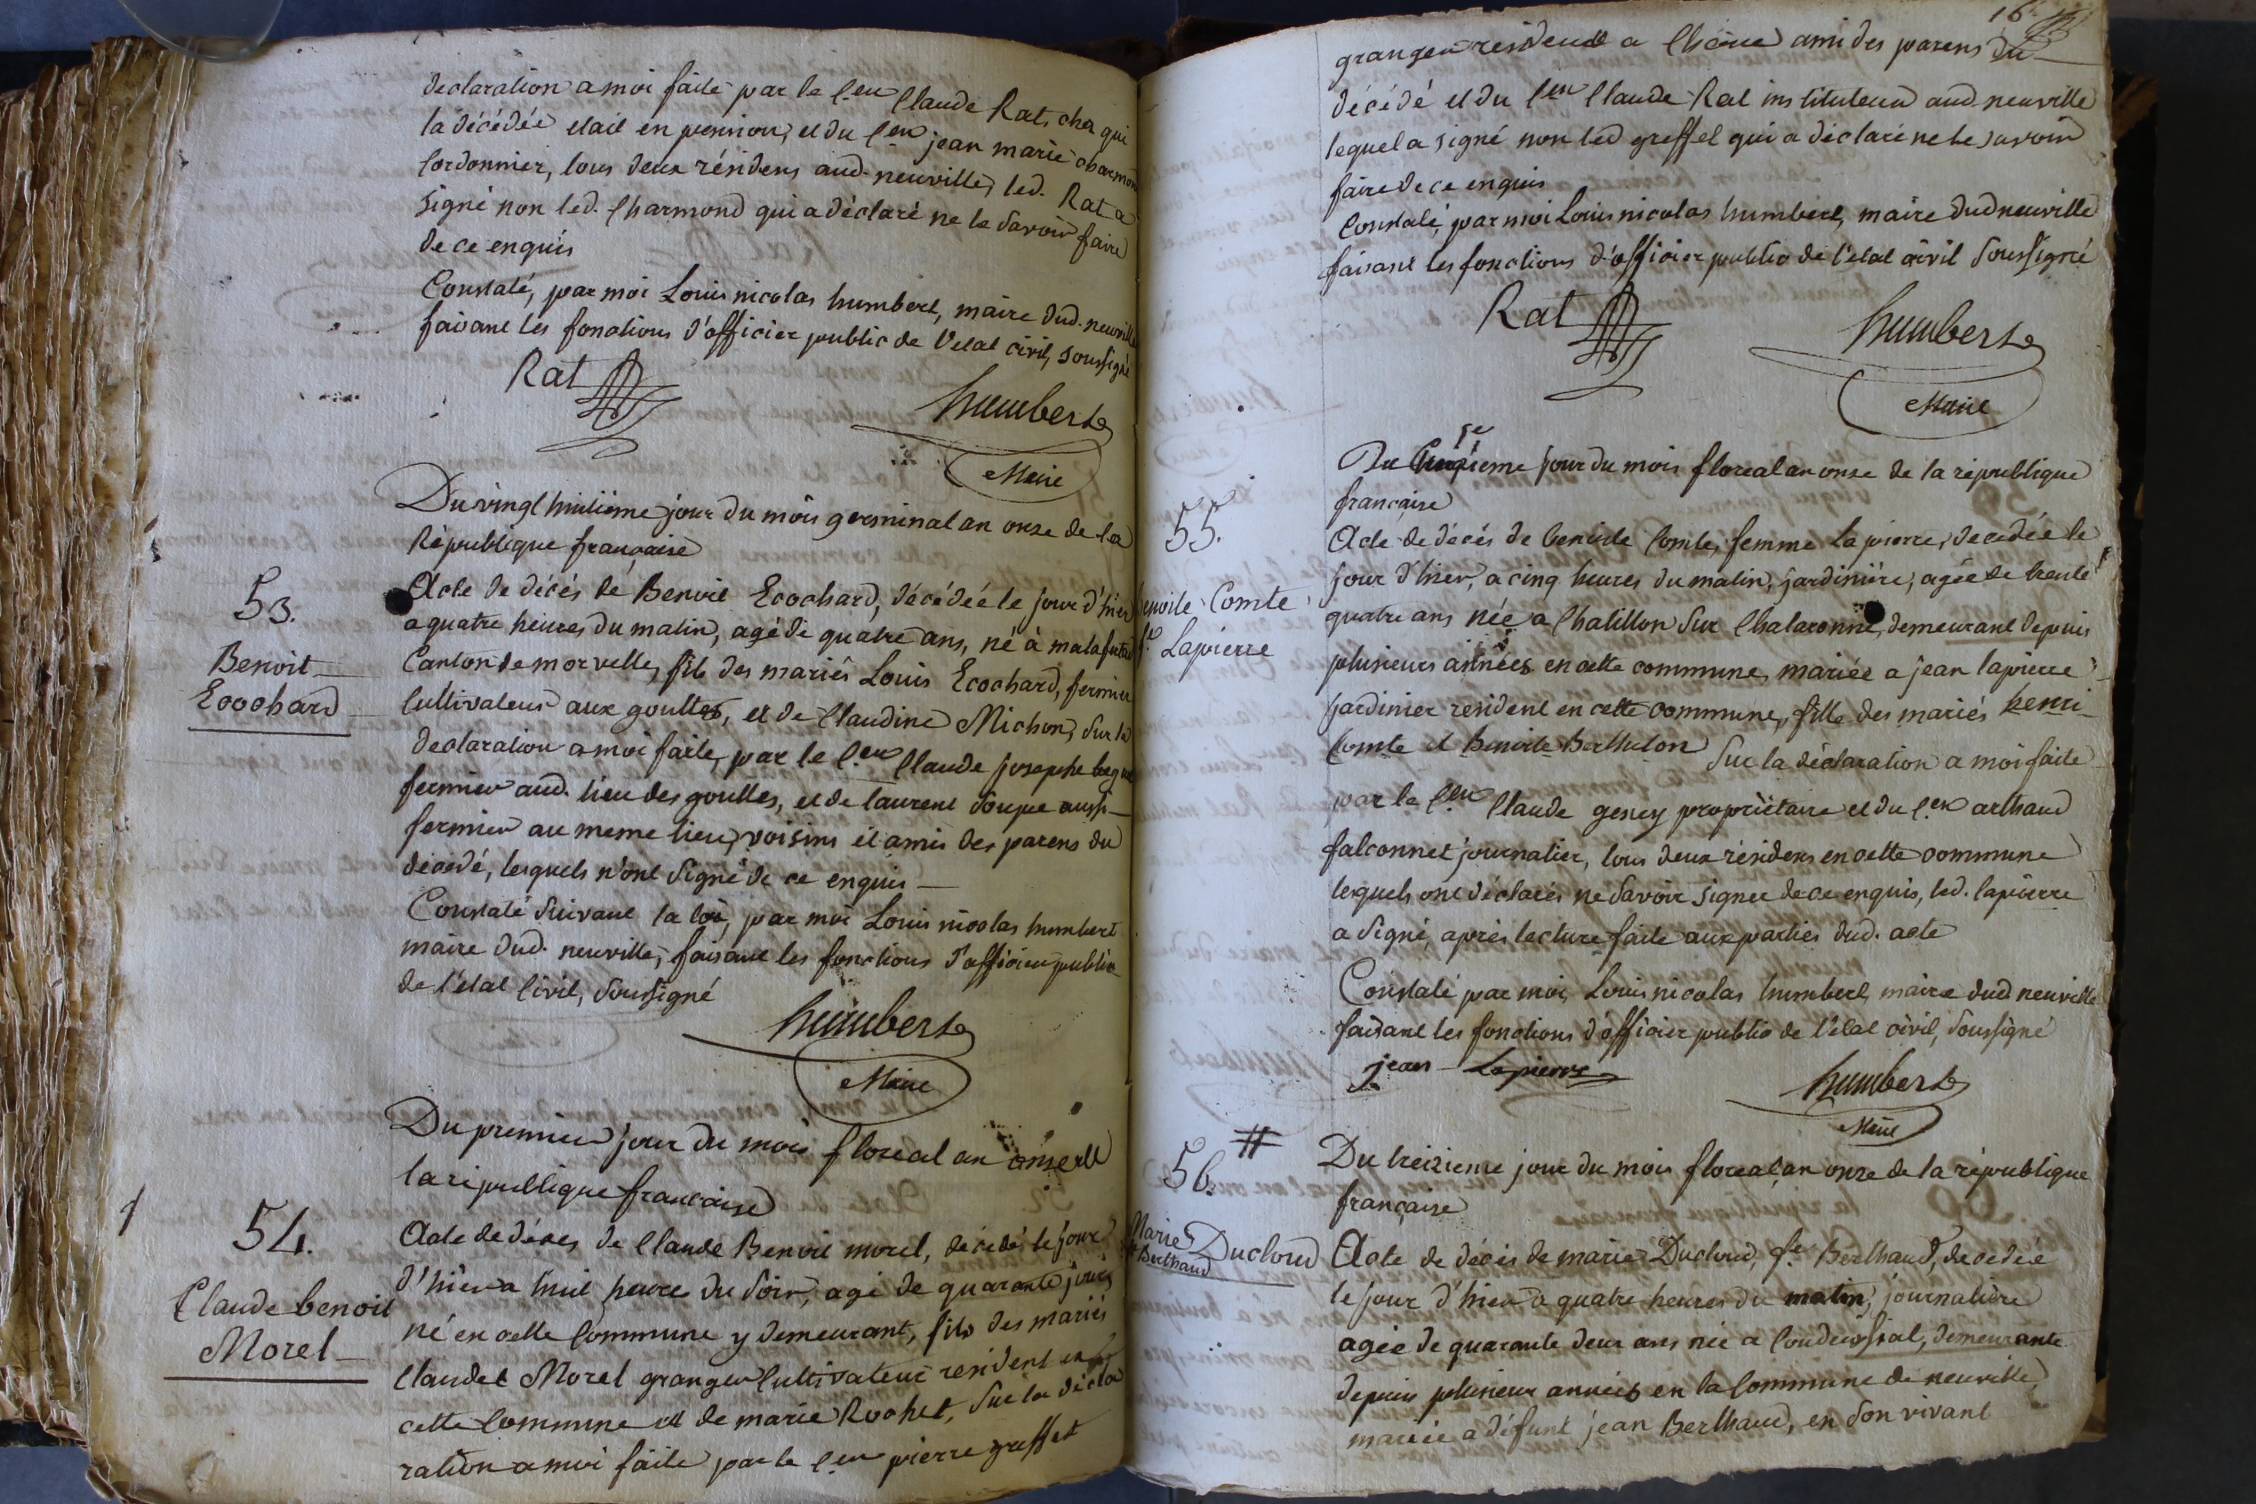 declaration a moi faite par le C.en Claude Rat, chez qui
la décédée etait en pension, et du C.en jean marie charmond
Cordonnier, tous deux résidens aud. neuville, led. Rat a
signé non led. Charmond qui a déclaré ne le savoir faire
de ce enquis
Constaté, par moi Louis nicolas humbert, maire dud. neuville
faisant les fonctions d'officier public de l'etat civil, soussigné
Rat
humbert
Maire
Du vingt huitième jour du mois germinal an onze de la
République française
53.
Benoit
Ecochard
Acte de décés de Benoit Ecochard, décédée le jour d'hier
a quatre heures du matin, agé de quatre ans, né à
Canton de morvelle, fils des mariés Louis Ecochard, fermier
Cultivateur aux gouttes, et de Claudine Michon, Sur la
declaration a moi faite, par le C.en Claude josephe
fermier aud. lieu des gouttes, et de laurent Soupe aussi
fermier au meme lieu, voisins et amis des parens du
décédé, lesquels n'ont Signé de ce enquis
Constaté Suivant la loi, par moi Louis nicolas humbert
maire dud. neuville, faisant les fonctions d'officier public
de l'état Civil, Soussigné
humbert
Maire
Du premier jour du mois floreal an onze de
la république française
54.
Claude benoit
Morel
Acte de déces de Claude Benoit morel, décédé le jour
d'hier a huit heures du Soir, agé de quarante jours
né en cette Commune y demeurant, fils des mariés
Claude Morel granger Cultivateur resident en
cette Commune et de marie Rochet, Sur la décla
ration a moi faite par le C.en pierre greffet
16
granger résident a Chêne ami des parens du
décédé et du C.en Claude Rat instituteur aud. neuville
lequel a signé non led greffet qui a déclaré ne le savoir
faire de ce enquis
Constaté, par moi Louis nicolas humbert, maire dud neuville
faisant les fonctions d'officier public de l'etat civil Soussigné
Rat
humbert
Maire
5e
Du Cinqieme jour du mois floreal an onze de la république
française
55.
Benoite Comte
fe. Lapierre
Acte de décés de benoite Comte, femme Lapierre, decedée le
jour d'hier, a cinq heures du matin, jardinière, agée de trente
quatre ans née a Chatillon Sur Chalaronne, demeurant depuis
plusieurs années en cette commune, mariée a jean lapierre
jardinier resident en cette commune, fille des mariés henri
Comte et Benoite Berthelon Sur la déclaration a moi faite
par le C.en Claude gency propriétaire et du C.en arthaud
falconnet journalier, tous deux résidens en cette commune
lesquels ont déclarés ne Savoir signer de ce enquis, led. lapierre
a Signé, après lecture faite aux parties dud. acte
Constaté par moi Louis nicolas humbert, maire dud neuville
faisant les fonctions d'officier public de l'état civil, Soussigné
jean Lapierre
humbert
Maire
Du treizieme jour du mois floreal, an onze de la république
française
56.
Marie Ducloud
fe Berthaud
Acte de décés de marie Ducloud, fe. Berthaud, decedée
le jour d'hier a quatre heures du matin, journalière
agée de quarante deux ans née a Condeissiat, demeurante
depuis plusieur années en la Commune de neuville,
mariée a défunt jean Berthaud, en Son vivant